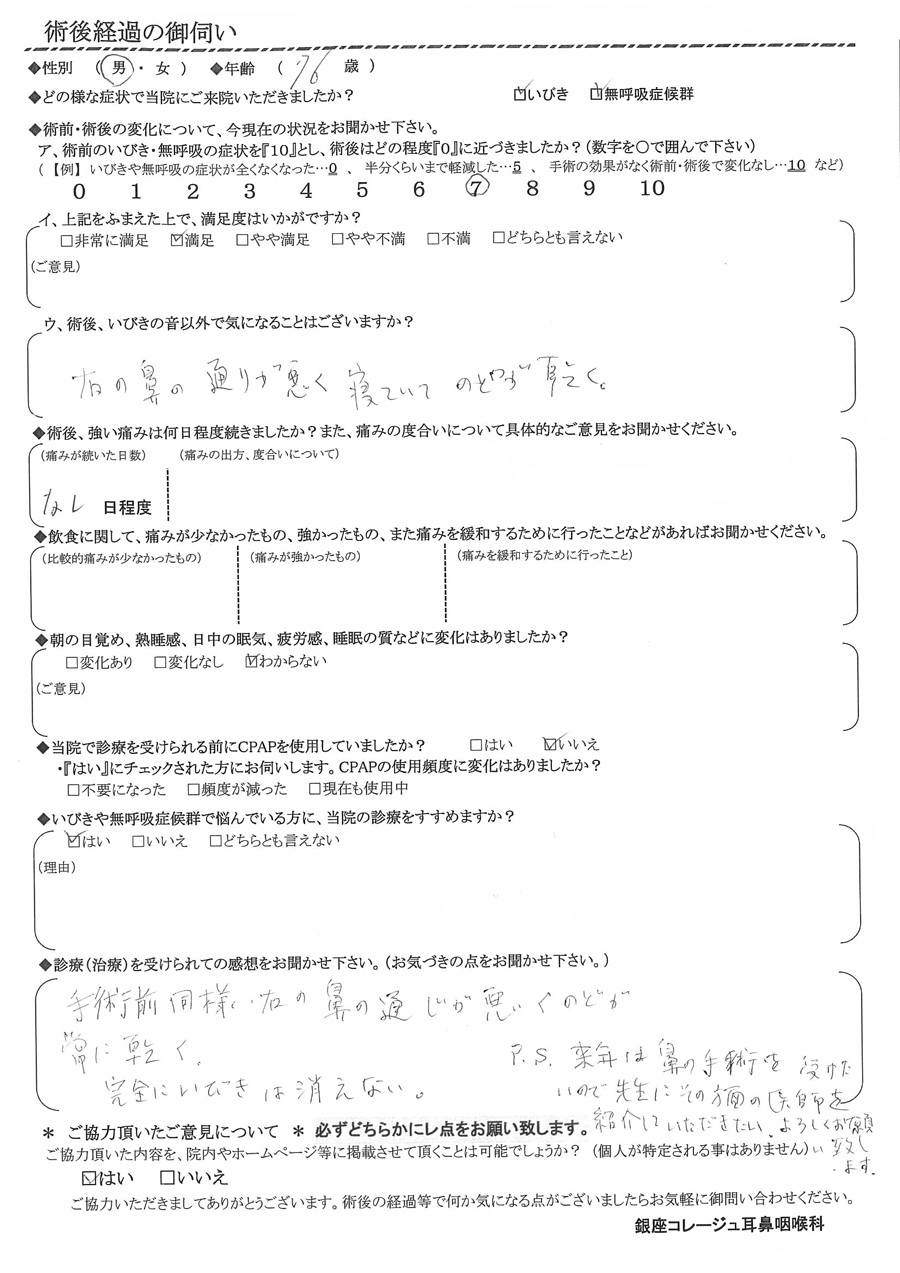 術後経過の御伺い
◆性別 （ 男 ・ 女 ） ◆年齢 （ 76 歳 ）
◆どの様な症状で当院にご来院いただきましたか？ ☑いびき ☑無呼吸症候群
◆術前・術後の変化について、今現在の状況をお聞かせ下さい。
ア、術前のいびき・無呼吸の症状を『10』とし、術後はどの程度『0』に近づきましたか？（数字を○で囲んで下さい）
（【例】 いびきや無呼吸の症状が全くなくなった…0 、 半分くらいまで軽減した…5 、 手術の効果がなく術前・術後で変化なし…10 など）
0 1 2 3 4 5 6 7 8 9 10
イ、上記をふまえた上で、満足度はいかがですか？
□非常に満足 ☑満足 □やや満足 □やや不満 □不満 □どちらとも言えない
（ご意見）
ウ、術後、いびきの音以外で気になることはございますか？
右の鼻の通りが悪く寝ていてのどが乾く。
◆術後、強い痛みは何日程度続きましたか？また、痛みの度合いについて具体的なご意見をお聞かせください。
（痛みが続いた日数） （痛みの出方、度合いについて）
なし 日程度
◆飲食に関して、痛みが少なかったもの、強かったもの、また痛みを緩和するために行ったことなどがあればお聞かせください。
（比較的痛みが少なかったもの） （痛みが強かったもの） （痛みを緩和するために行ったこと）
◆朝の目覚め、熟睡感、日中の眠気、疲労感、睡眠の質などに変化はありましたか？
□変化あり □変化なし ☑わからない
（ご意見）
◆当院で診療を受けられる前にCPAPを使用していましたか？ □はい ☑いいえ
・『はい』にチェックされた方にお伺いします。CPAPの使用頻度に変化はありましたか？
□不要になった □頻度が減った □現在も使用中
◆いびきや無呼吸症候群で悩んでいる方に、当院の診療をすすめますか？
☑はい □いいえ □どちらとも言えない
（理由）
◆診療（治療）を受けられての感想をお聞かせ下さい。（お気づきの点をお聞かせ下さい。）
手術前同様、右の鼻の通じが悪くのどが
常に乾く。
完全にいびきは消えない。
P.S. 来年は鼻の手術を受けた
いので先生にその方面の医師を
紹介していただきたい、よろしくお願
い致し
ます。
＊ ご協力頂いたご意見について ＊ 必ずどちらかにレ点をお願い致します。
ご協力頂いた内容を、院内やホームページ等に掲載させて頂くことは可能でしょうか？（個人が特定される事はありません）
☑はい □いいえ
ご協力いただきましてありがとうございます。術後の経過等で何か気になる点がございましたらお気軽に御問い合わせください。
銀座コレージュ耳鼻咽喉科